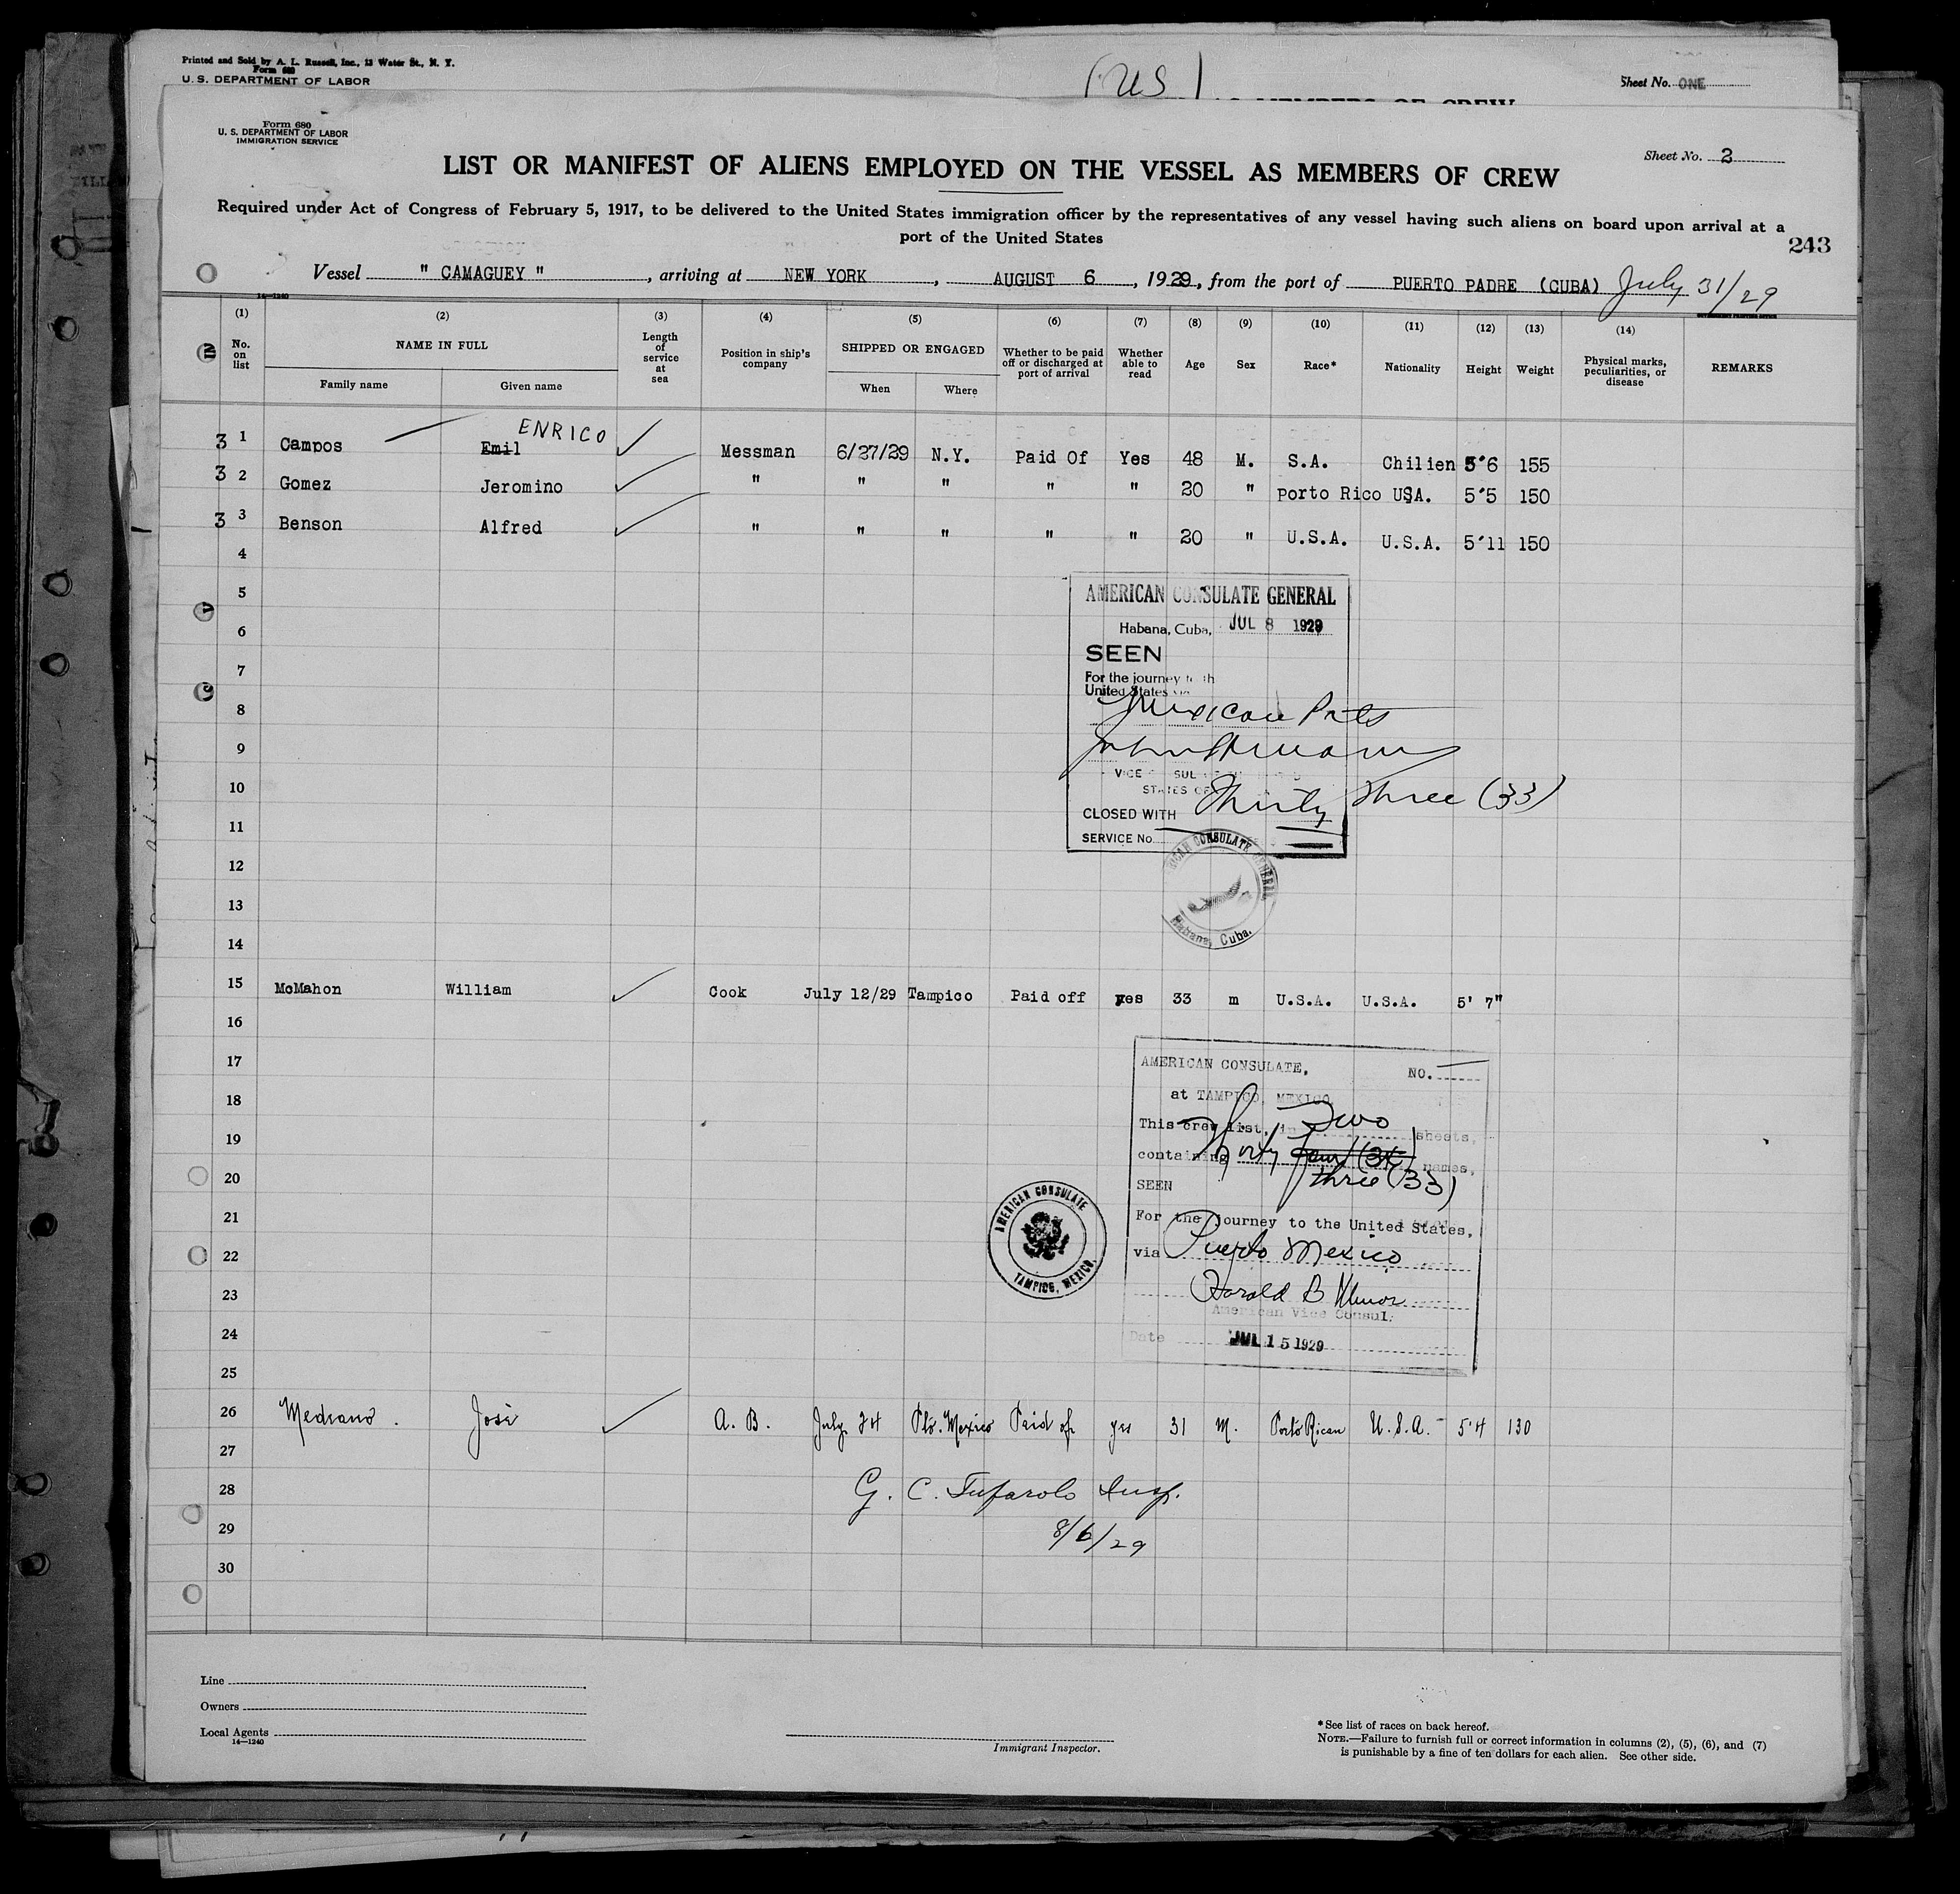 Printed and Sold by A. L. Russell, Inc., 13 Water St., N. Y.
Form 680
U. S. DEPARTMENT OF LABOR
(US)
Sheet No. ONE
MEMBERS OF CREW
Form 680
U. S. DEPARTMENT OF LABOR
IMMIGRATION SERVICE
Sheet No. 2
LIST OR MANIFEST OF ALIENS EMPLOYED ON THE VESSEL AS MEMBERS OF CREW
Required under Act of Congress of February 5, 1917, to be delivered to the United States immigration officer by the representatives of any vessel having such aliens on board upon arrival at a
port of the United States
243
Vessel " CAMAGUEY ", arriving at NEW YORK, AUGUST 6, 1929, from the port of PUERTO PADRE (CUBA) July 31/29
14—1240
GOVERNMENT PRINTING OFFICE
(1) (2) (3) (4) (5) (6) (7) (8) (9) (10) (11) (12) (13) (14)
No. on list NAME IN FULL Family name Given name Length of service at sea Position in ship's company SHIPPED OR ENGAGED When Where Whether to be paid off or discharged at port of arrival Whether able to read Age Sex Race* Nationality Height Weight Physical marks, peculiarities, or disease REMARKS
ENRICO
3 1 Campos Emil Messman 6/27/29 N.Y. Paid Of Yes 48 M. S.A. Chilien 5'6 155
3 2 Gomez Jeromino " " " " " 20 " Porto Rico USA. 5'5 150
3 3 Benson Alfred " " " " " 20 " U.S.A. U.S.A. 5'11 150
4
5
6
7
8
9
10
11
12
13
14
AMERICAN CONSULATE GENERAL
Habana, Cuba, JUL 8 1929
SEEN
For the journey to th
United States via
Mexican Ports
VICE
STATES OF
CLOSED WITH Thirty Three (33)
SERVICE No.
AMERICAN CONSULATE GENERAL
Habana, Cuba.
15 McMahon William Cook July 12/29 Tampico Paid off yes 33 m U.S.A. U.S.A. 5' 7"
16
17
18
19
20
21
22
23
24
25
AMERICAN CONSULATE, NO.
at TAMPICO, MEXICO
This crew list, in Two sheets,
containing Thirty four (34) names,
SEEN three (33)
For the journey to the United States,
via Puerto Mexico
Harold B Minor
American Vice Consul.
Date JUL 15 1929
AMERICAN CONSULATE
TAMPICO, MEXICO.
26 Medrano. José A. B. July 24 Pto. Mexico Paid of yes 31 M. Porto Rican U.S.A. 5'4 130
27
28 G. C. Tufarolo Insp.
29 8/6/29
30
Line
Owners
Local Agents
14—1240
Immigrant Inspector.
*See list of races on back hereof.
NOTE.—Failure to furnish full or correct information in columns (2), (5), (6), and (7)
is punishable by a fine of ten dollars for each alien. See other side.